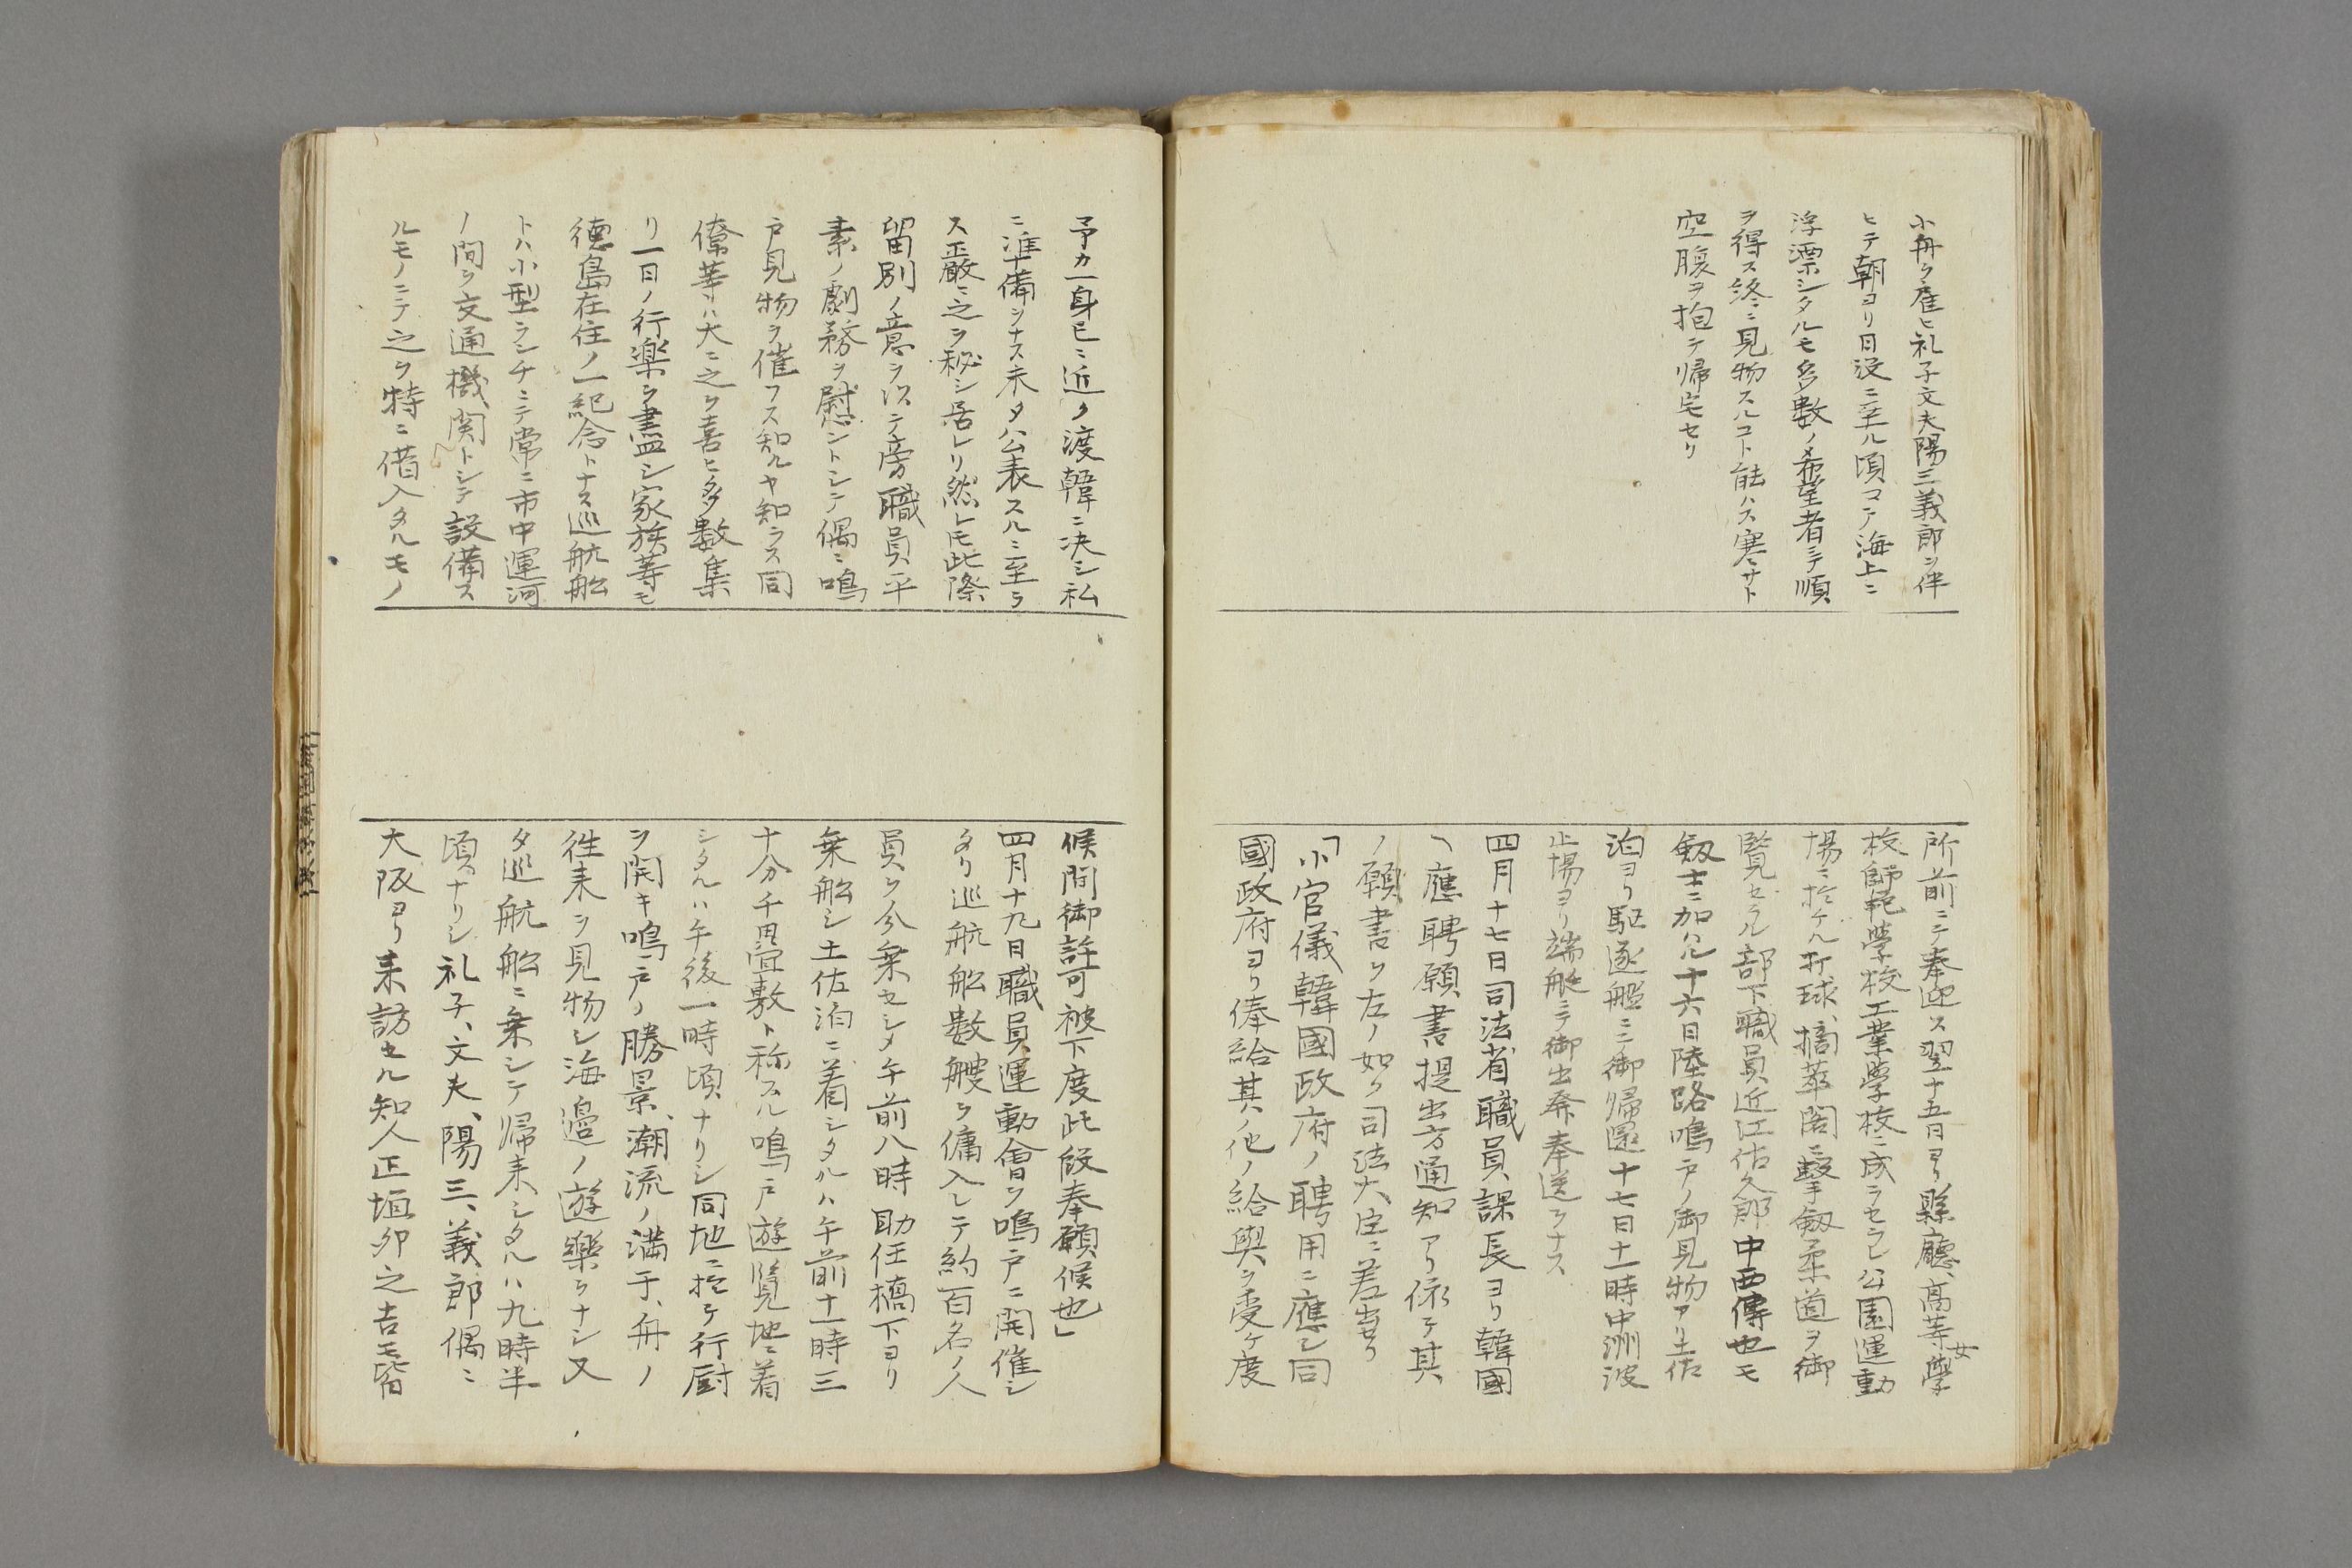 小舟ヲ雇ヒ礼子文夫陽三義郎ヲ伴
ヒテ朝ヨリ日没ニ至ル頃マテ海上ニ
浮漂シタルモ多数ノ希望者ニテ順
ヲ得ス終ニ見物スルコト能ハス寒サト
空腹ヲ抱テ帰宅セリ
所前ニテ奉迎ス翌十五日ヨリ縣廳、高等女學
校師範學校工業學校ニ成ラセラレ公園運動
場ニ於ケル打球、摘萃閣ニ撃剱柔道ヲ御
覧セラル部下職員近江佑久郎中西傳也モ
剱士ニ加ハル十六日陸路鳴戸ノ御見物アリ土佐
泊ヨリ駆逐艦ニテ御帰還十七日十一時中洲波
止場ヨリ端艇ニテ御出発奉送ヲナス
四月十七日司法省職員課長ヨリ韓國
ヘ應聘願書提出方通知アリ依テ其
ノ願書ヲ左ノ如ク司法大臣ニ差出セリ
「小官儀韓國政府ノ聘用ニ應シ同
國政府ヨリ俸給其ノ他ノ給與ヲ受ケ度
予カ一身已ニ近ク渡韓ニ決シ私
ニ準備ヲナス未タ公表スルニ至ラ
ス嚴ニ之ヲ秘シ居レリ然レトモ此際
留別ノ意ヲ以テ旁職員平
素ノ劇務ヲ慰ントシテ偶ニ鳴
戸見物ヲ催フス知ルヤ知ラス同
僚等ハ大ニ之ヲ喜ヒ多数集
リ一日ノ行楽ヲ盡シ家族等モ
徳島在住ノ一紀念トナス巡航船
トハ小型ランチニテ常ニ市中運河
ノ間ヲ交通機関トシテ設備ス
ルモノニテ之ヲ特ニ借入タルモノ
候間御許可被下度此段奉願候也」
四月十九日職員運動會ヲ鳴戸ニ開催シ
タリ巡航船数艘ヲ傭入レテ約百名ノ人
員ヲ分乗セシメ午前八時助任橋下ヨリ
乗船シ土佐泊ニ着シタルハ午前十一時三
十分千畳敷ト称スル鳴戸遊覧地ニ着
シタルハ午後一時頃ナリシ同地ニ於テ行厨
ヲ開キ鳴戸ノ勝景、潮流ノ満干、舟ノ
往来ヲ見物シ海邉ノ遊樂ヲナシ又
タ巡航船ニ乗シテ帰来シタルハ九時半
頃ナリシ礼子、文夫、陽三、義郎偶ニ
大阪ヨリ来訪セル知人正垣卯之吉モ皆